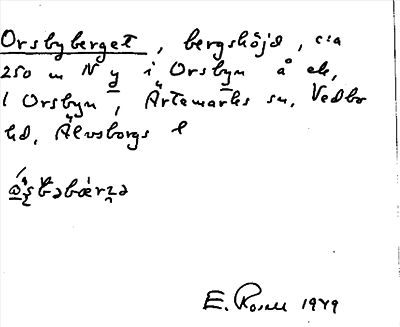 Orsbyberget, bergshöjd, c:a
250 m N y i Orsbyn å ek,
i Orsbyn, Ärtemarks sn, Vedbo
hd, Älvsborgs l
E. Rosell 1949